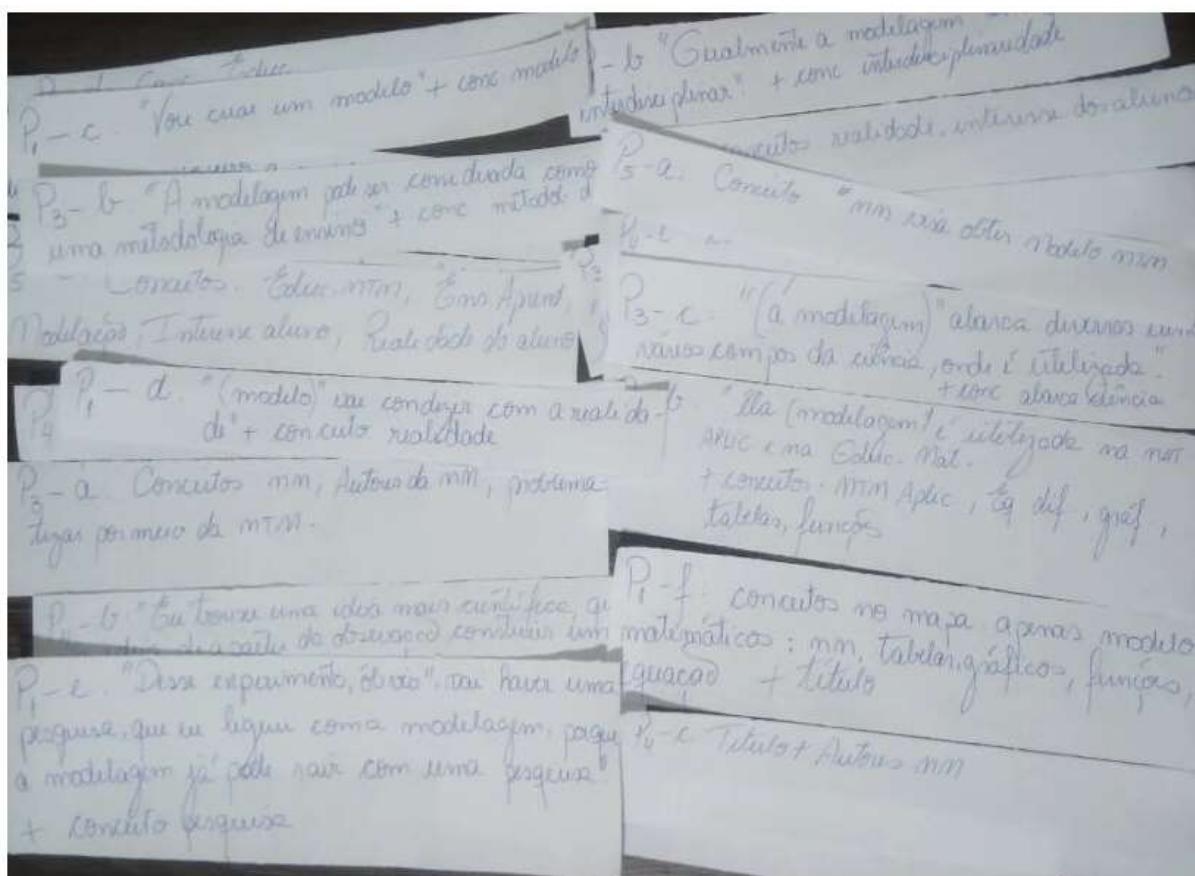 P1 - c. "Vou criar um modelo" + conc modelo
P3 - b "A modelagem pode ser considerada como
uma metodologia de ensino" + conc metod. d
5 - Conceitos. Educ. MTM, Ens Aprend,
Modelação, Interesse aluno, Realidade do aluno
P4
P1 - d. "(modelo)" vai condizer com a realida-
de" + conceito realidade
P3 - a Conceitos mm, Autores da mm, problema
tizar por meio da MTM.
P - b "Eu trouxe uma ideia mais científica, qu
a partir da observação construir um
P1 - e. "Desse experimento, óbvio", vai haver uma
pesquisa, que eu liguei com a modelagem, porque
a modelagem já pode sair com uma pesquisa"
+ conceito pesquisa
- b "Gualmente a modelagem
interdisciplinar" + conc interdisciplinaridade
conceitos realidade, interesse do aluno
P5 - a. Conceito "mm visa obter modelo mm
P3 - c. "(a modelagem)" abarca diversos
vários campos da ciência, onde é utilizada."
+ conc abarca ciência
b. "Ela (modelagem) é utilizada na MTM
APLIC e na Educ. Mat.
+ conceitos. MTM Aplic, Eq dif, gráf,
tabelas, funções
P1 - f. conceitos no mapa apenas modelo
matemáticos: mm, tabelas, gráficos, funções,
equação + título
P4 - c Titulo + Autores mm